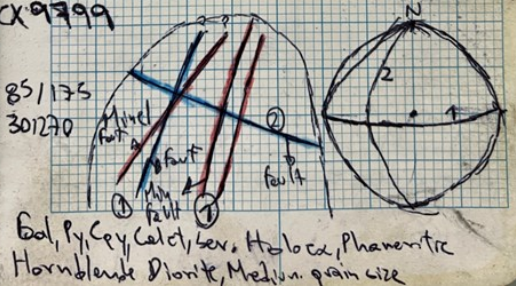 CX 9799
N
2
85/175
301270
Minel
fault
②
1
fault
Min
fault
fault
①
①
Gal, Py, Cpy, Calct, Ser, Holocx, Phaneritic
Hornblende Diorite, Medium grain size